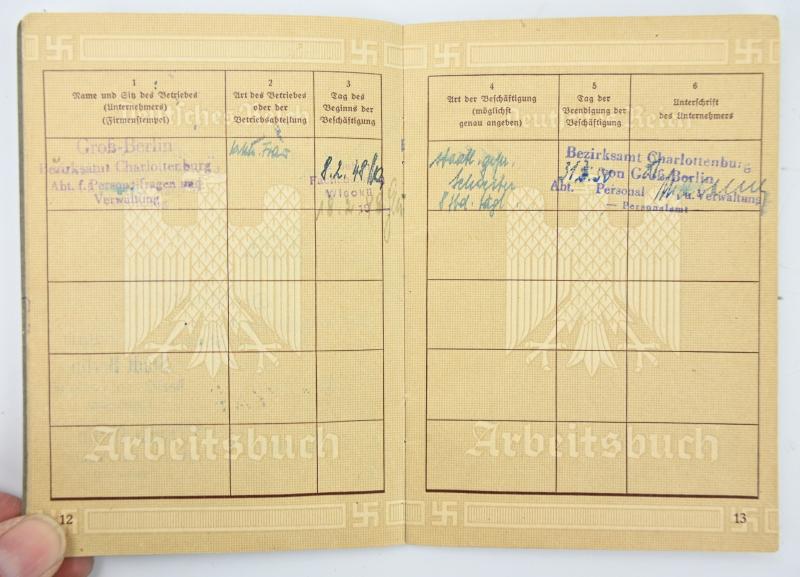 1
Name und Sitz des Betriebes
(Unternehmers)
(Firmenstempel)
2
Art des Betriebes
oder der
Betriebsabteilung
3
Tag des
Beginns der
Beschäftigung
Groß-Berlin
Bezirksamt Charlottenburg
Abt. f. Personalfragen und
Verwaltung
8.2.48
18.2.48
19
Arbeitsbuch
12
4
Art der Beschäftigung
(möglichst
genau angeben)
5
Tag der
Beendigung der
Beschäftigung
6
Unterschrift
des Unternehmers
Deutsches Reich
staatl. gepr.
8 Std. tägl.
31.3.50
Bezirksamt Charlottenburg
von Groß-Berlin
Abt. Personal u. Verwaltung
— Personalamt —
Arbeitsbuch
13